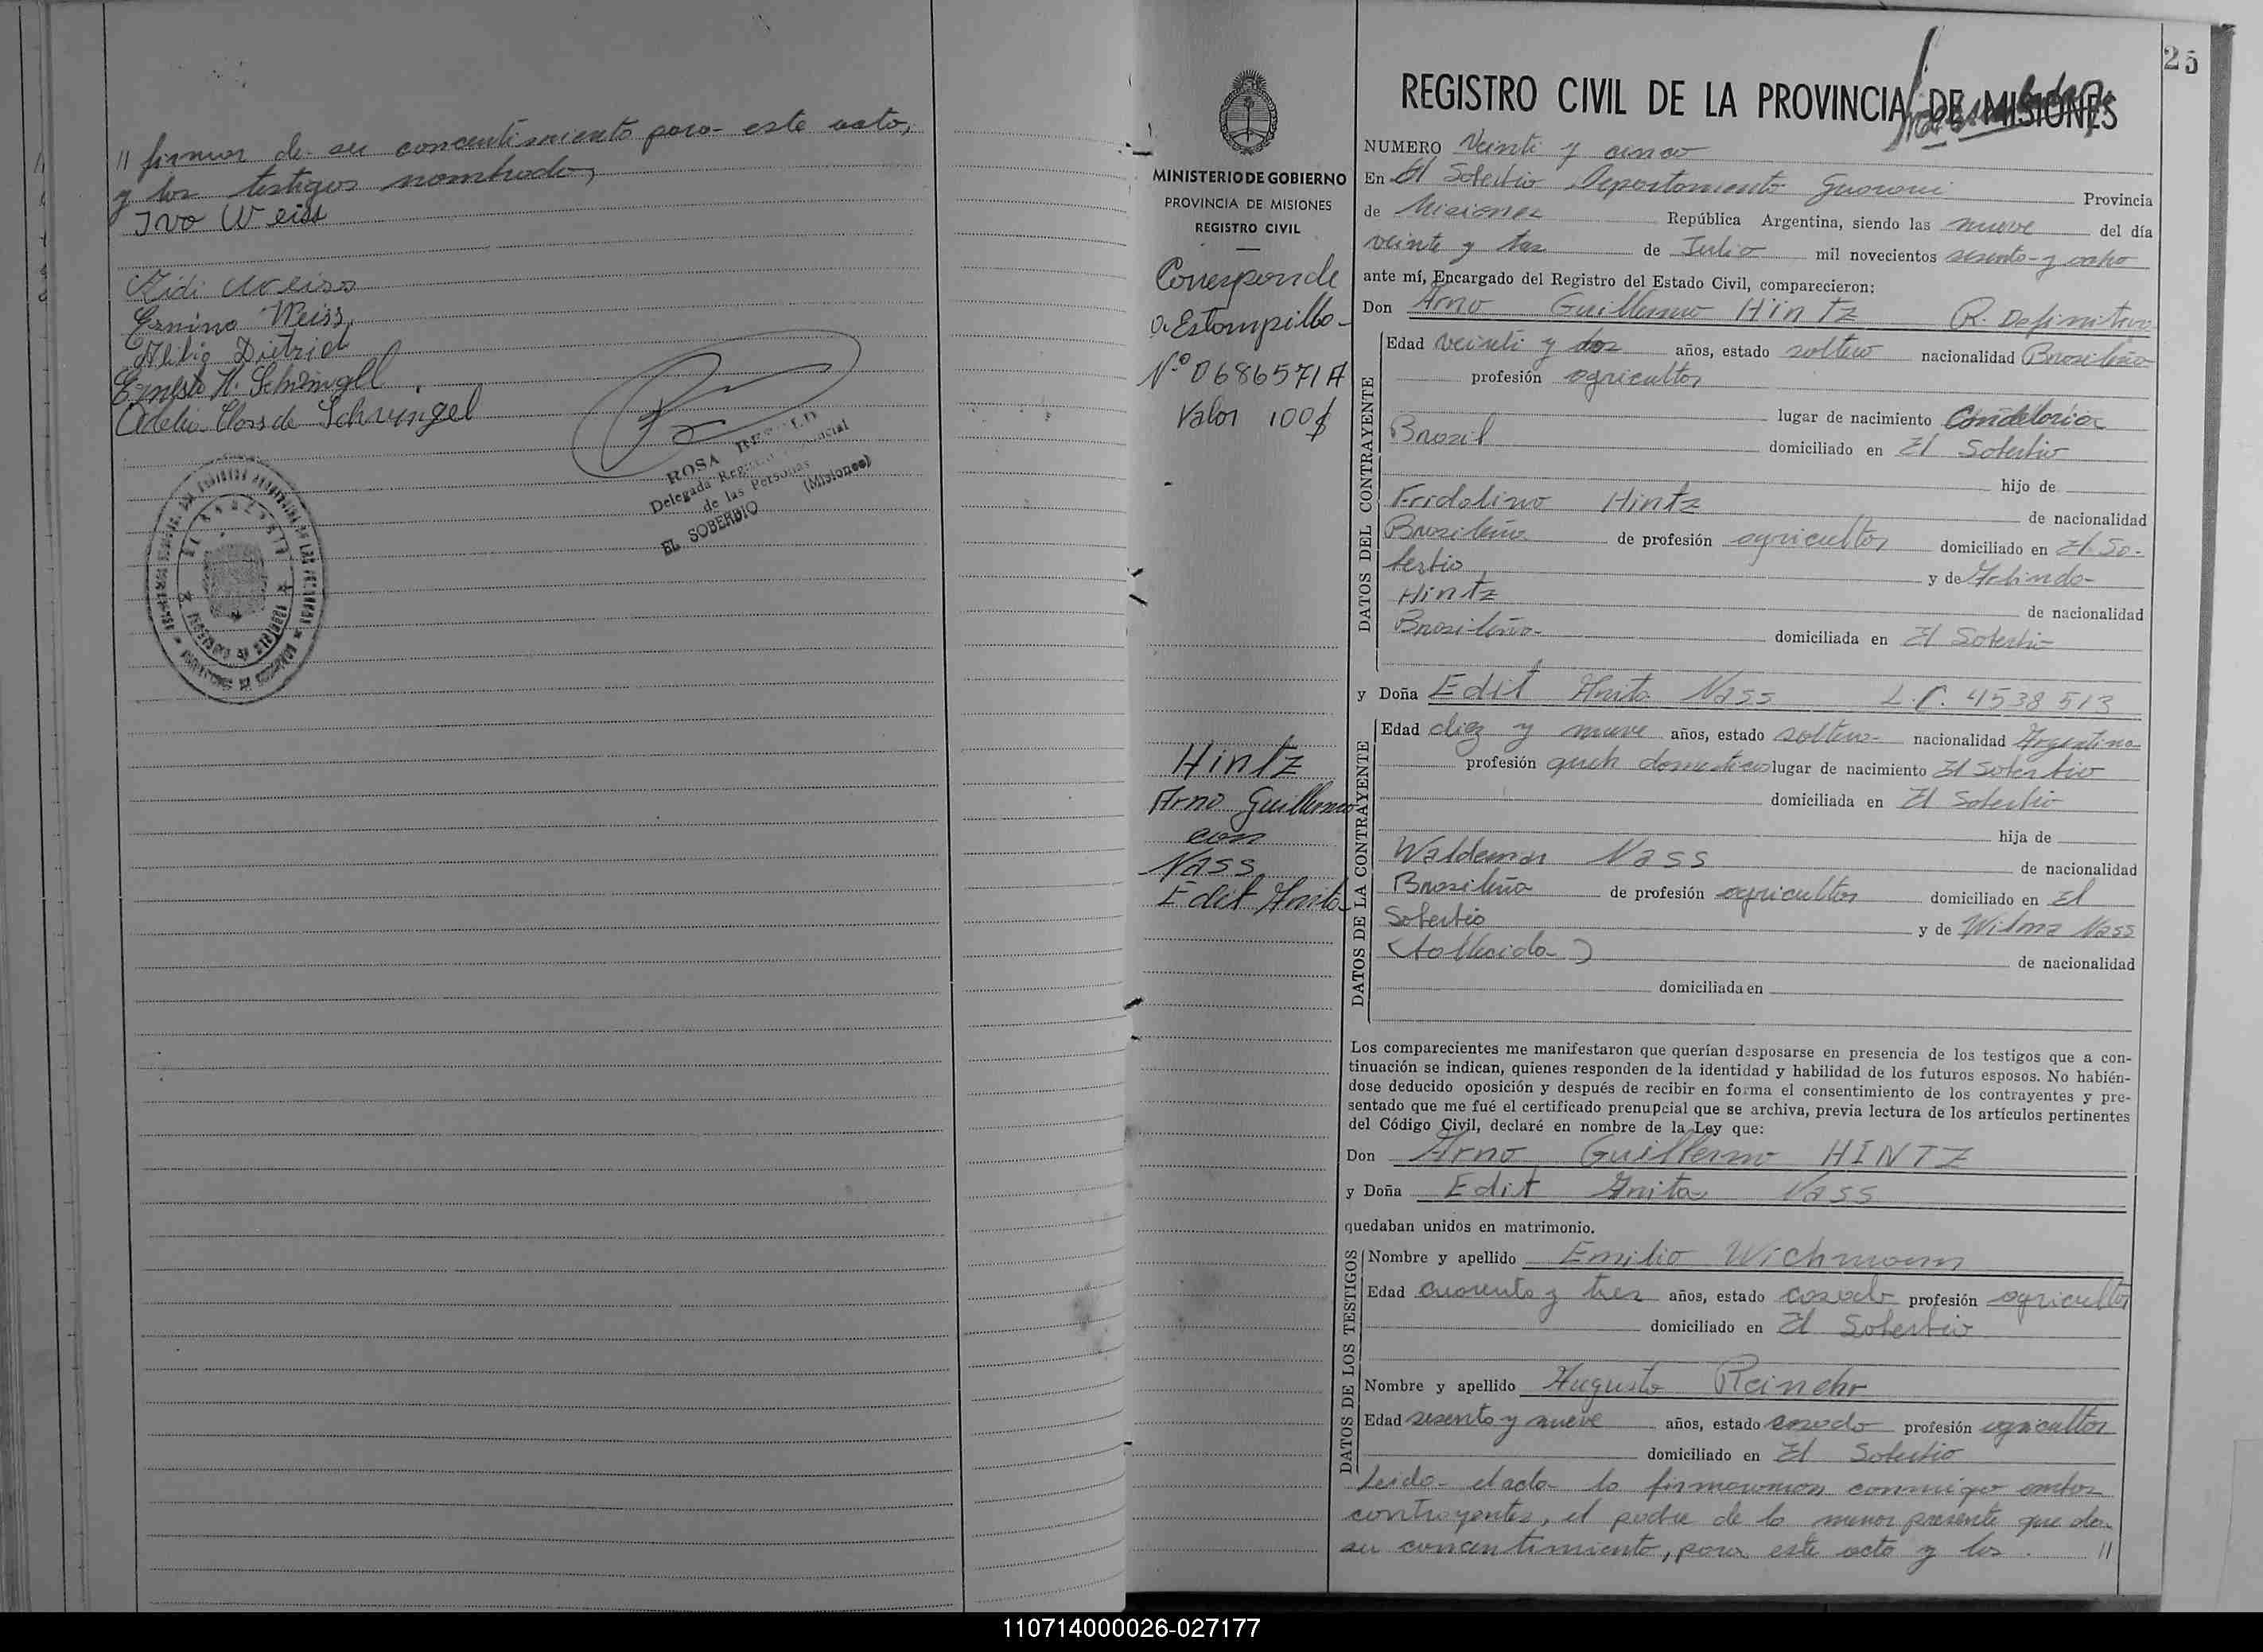 // firman de su concentimiento para este acto,
y los testigos nombrados,
Ivo Weiss
Weiss
Ermino Weiss
Dietrich
Ernesto H. Schwingel
Adelia Closs de Schwingel
ROSA
Delegada
de las Personas
EL SOBERBIO (Misiones)
25
REGISTRO CIVIL DE LA PROVINCIA DE MISIONES
MINISTERIO DE GOBIERNO
PROVINCIA DE MISIONES
REGISTRO CIVIL
Corresponde
a Estampilla
Nº 0686571A
Valor 100$
Hintz
Arno Guillermo
con
Nass
Edit Anita
NUMERO Veinti y cinco
En El Soberbio Departamento Guarani Provincia
de Misiones República Argentina, siendo las nueve del día
veinte y tres de Julio mil novecientos sesenta y ocho
ante mí, Encargado del Registro del Estado Civil, comparecieron:
Don Arno Guillermo Hintz R. Definitiva
DATOS DEL CONTRAYENTE
Edad veinti y dos años, estado soltero nacionalidad Brasileña
profesión agricultor
lugar de nacimiento Candelaria
Brasil domiciliado en El Soberbio
hijo de
Fridolino Hintz de nacionalidad
Brasileña de profesión agricultor domiciliado en El So-
berbio y de
Hintz de nacionalidad
Brasileña domiciliada en El Soberbio
y Doña Edit Anita Nass L.C. 4538513
DATOS DE LA CONTRAYENTE
Edad diez y nueve años, estado soltera nacionalidad Argentina
profesión queh domesticos lugar de nacimiento El Soberbio
domiciliada en El Soberbio
hija de
Waldemar Nass de nacionalidad
Brasileña de profesión agricultor domiciliado en El
Soberbio y de Wilma Nass
(fallecida) de nacionalidad
domiciliada en
Los comparecientes me manifestaron que querían desposarse en presencia de los testigos que a con-
tinuación se indican, quienes responden de la identidad y habilidad de los futuros esposos. No habién-
dose deducido oposición y después de recibir en forma el consentimiento de los contrayentes y pre-
sentado que me fué el certificado prenupcial que se archiva, previa lectura de los artículos pertinentes
del Código Civil, declaré en nombre de la Ley que:
Don Arno Guillermo HINTZ
y Doña Edit Anita Nass
quedaban unidos en matrimonio.
DATOS DE LOS TESTIGOS
Nombre y apellido Emilio Wichmann
Edad cuarenta y tres años, estado casado profesión agricultor
domiciliado en El Soberbio
Nombre y apellido Augusto Reinehr
Edad sesenta y nueve años, estado casado profesión agricultor
domiciliado en El Soberbio
Leida el acta la firmaron conmigo ambos
contrayentes, el padre de la menor presente que da
su concentimiento, para este acto y los //
110714000026-027177